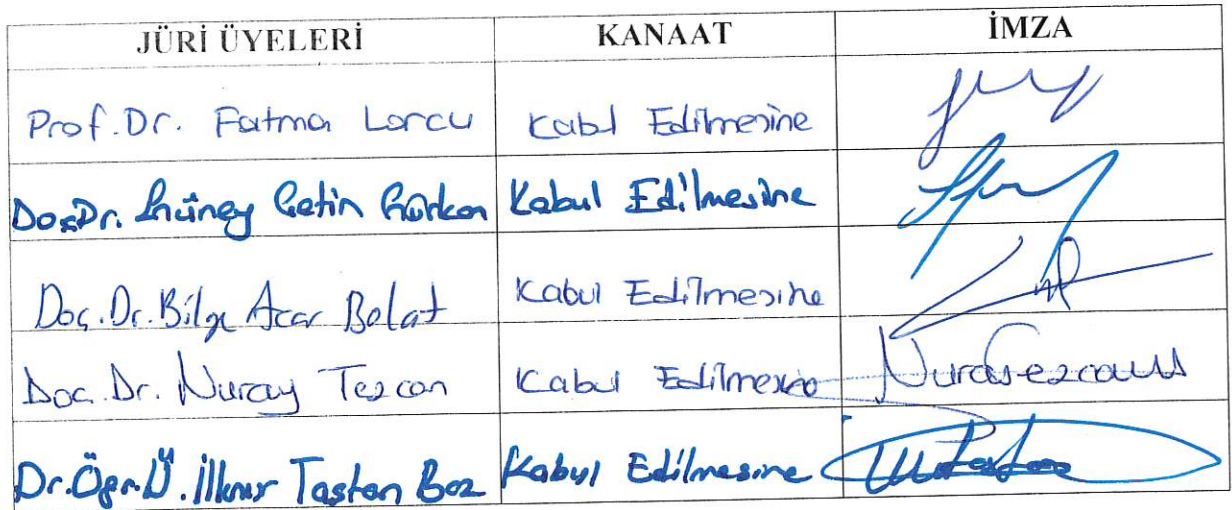 JÜRİ ÜYELERİ KANAAT İMZA
Prof.Dr. Fatma Lorcu Kabul Edilmesine
Doç.Dr. Güney Çetin Gürkan Kabul Edilmesine
Doç.Dr.Bilge Acar Bolat Kabul Edilmesine
Doç.Dr. Nuray Tezcan Kabul Edilmesine
Dr.Öğr.Ü.İlknur Taştan Boz Kabul Edilmesine